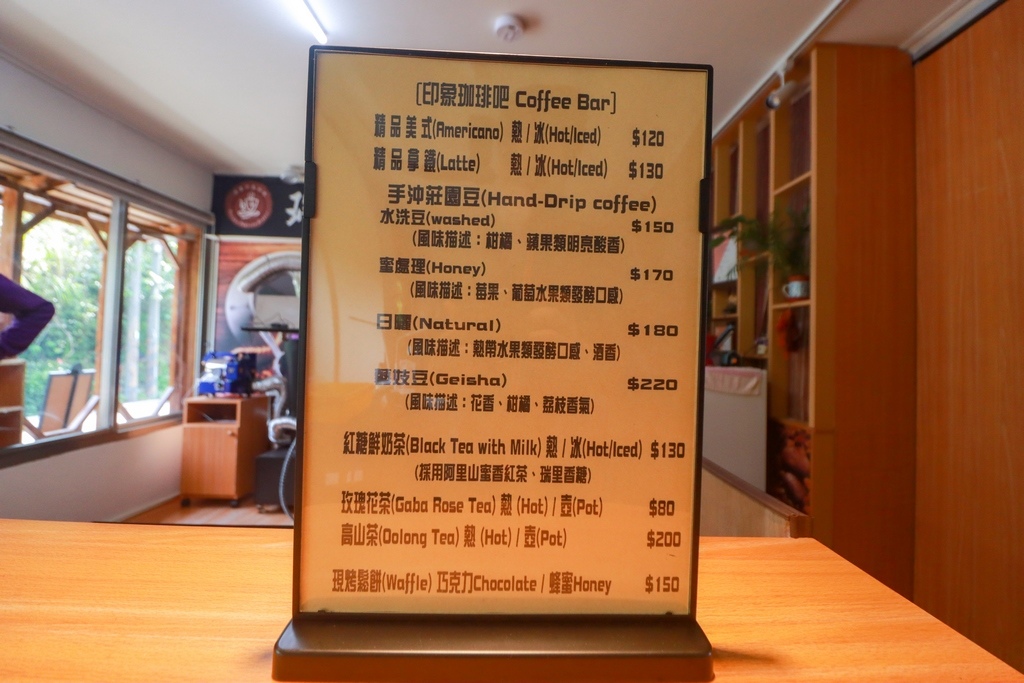 [印象珈琲吧 Coffee Bar]
精品美式(Americano) 熱 / 冰(Hot/Iced) $120
精品拿鐵(Latte) 熱 / 冰(Hot/Iced) $130
手沖莊園豆(Hand-Drip coffee)
水洗豆(washed) $150
(風味描述：柑橘、蘋果類明亮酸香)
蜜處理(Honey) $170
(風味描述：莓果、葡萄水果類發酵口感)
日曬(Natural) $180
(風味描述：熱帶水果類發酵口感、酒香)
藝妓豆(Geisha) $220
(風味描述：花香、柑橘、荔枝香氣)
紅糖鮮奶茶(Black Tea with Milk) 熱 / 冰(Hot/Iced) $130
(採用阿里山蜜香紅茶、瑞里香糖)
玫瑰花茶(Gaba Rose Tea) 熱 (Hot) / 壺(Pot) $80
高山茶(Oolong Tea) 熱 (Hot) / 壺(Pot) $200
現烤鬆餅(Waffle) 巧克力Chocolate / 蜂蜜Honey $150